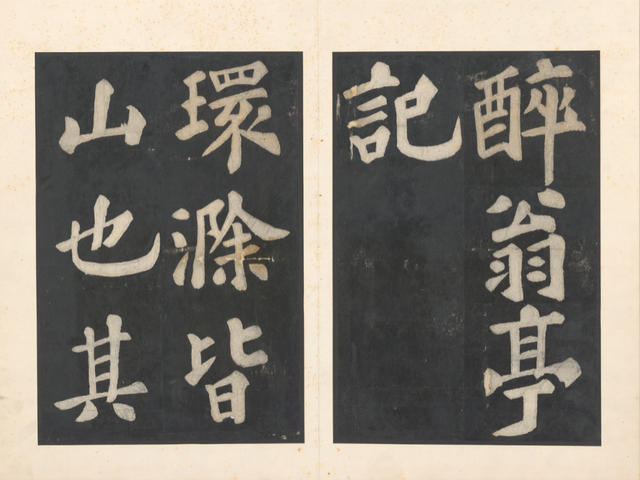 醉翁亭
記
環滁皆
山也其